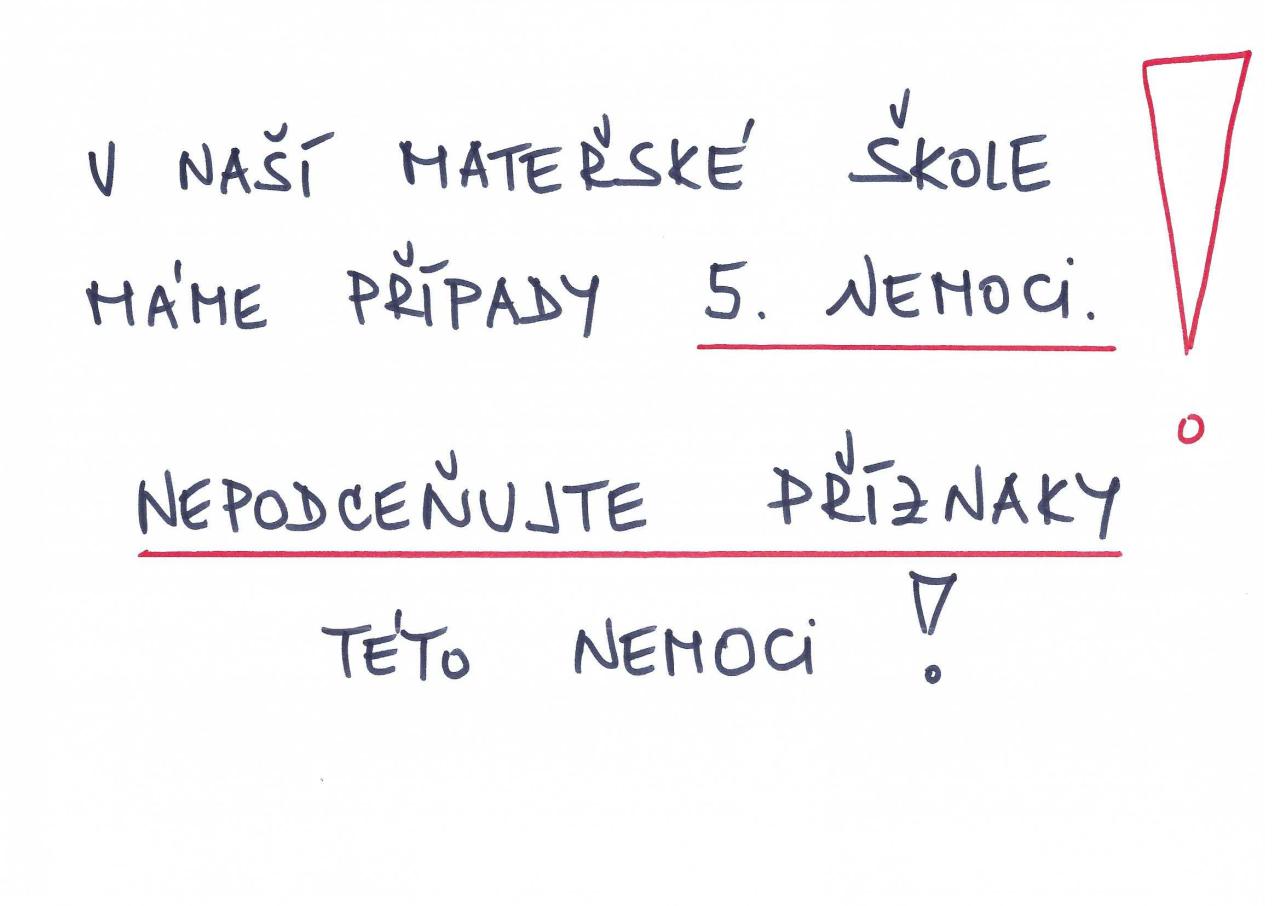 V NAŠÍ MATEŘSKÉ ŠKOLE
MÁME PŘÍPADY 5. NEMOCi.
NEPODCEŇUJTE PŘÍZNAKY
TÉTO NEMOCi !